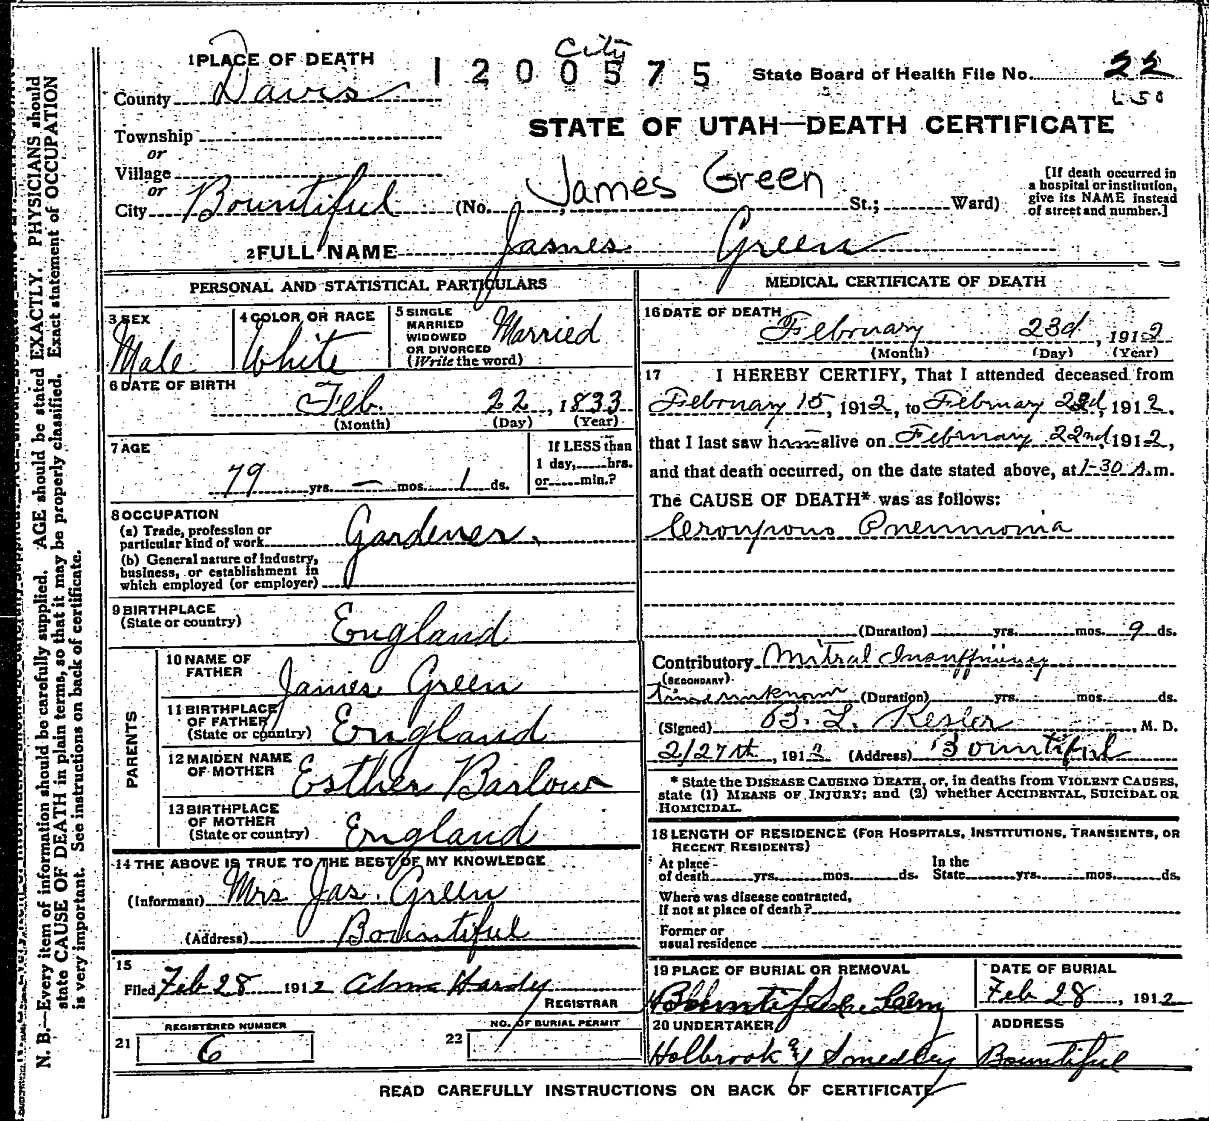 1 PLACE OF DEATH
City
1200575
State Board of Health File No. 22
County Davis
STATE OF UTAH—DEATH CERTIFICATE
Township
or
Village
or
City Bountiful (No. , St.; Ward)
James Green
[If death occurred in
a hospital or institution,
give its NAME instead
of street and number.]
2 FULL NAME James Green
PERSONAL AND STATISTICAL PARTICULARS
3 SEX
Male
4 COLOR OR RACE
White
5 SINGLE
MARRIED
WIDOWED
OR DIVORCED
(Write the word)
Married
6 DATE OF BIRTH
Feb. 22, 1833
(Month) (Day) (Year)
7 AGE
79 yrs. — mos. 1 ds.
If LESS than
1 day, hrs.
or min.?
8 OCCUPATION
(a) Trade, profession or
particular kind of work Gardener.
(b) General nature of industry,
business, or establishment in
which employed (or employer)
9 BIRTHPLACE
(State or country) England
PARENTS
10 NAME OF
FATHER James Green
11 BIRTHPLACE
OF FATHER
(State or country) England
12 MAIDEN NAME
OF MOTHER Esther Barlow
13 BIRTHPLACE
OF MOTHER
(State or country) England
14 THE ABOVE IS TRUE TO THE BEST OF MY KNOWLEDGE
(Informant) Mrs Jas. Green
(Address) Bountiful
15
Filed Feb 28 1912 Alma Hardy
REGISTRAR
REGISTERED NUMBER
21 6
NO. OF BURIAL PERMIT
22
MEDICAL CERTIFICATE OF DEATH
16 DATE OF DEATH
February 23d, 1912
(Month) (Day) (Year)
17 I HEREBY CERTIFY, That I attended deceased from
February 15, 1912, to February 22d, 1912,
that I last saw him alive on February 22nd, 1912,
and that death occurred, on the date stated above, at 1-30 A.m.
The CAUSE OF DEATH* was as follows:
Croupous Pneumonia
(Duration) yrs. mos. 9 ds.
Contributory Mitral Insufficiency
(SECONDARY)
time unknown (Duration) yrs. mos. ds.
(Signed) B. L. Kesler, M. D.
2/27th, 1912 (Address) Bountiful
* State the DISEASE CAUSING DEATH, or, in deaths from VIOLENT CAUSES,
state (1) MEANS OF INJURY; and (2) whether ACCIDENTAL, SUICIDAL OR
HOMICIDAL.
18 LENGTH OF RESIDENCE (FOR HOSPITALS, INSTITUTIONS, TRANSIENTS, OR
RECENT RESIDENTS)
At place
of death yrs. mos. ds.
In the
State yrs. mos. ds.
Where was disease contracted,
if not at place of death?
Former or
usual residence
19 PLACE OF BURIAL OR REMOVAL
Bountiful
DATE OF BURIAL
Feb 28, 1912
20 UNDERTAKER
Holbrook & Smedley
ADDRESS
Bountiful
READ CAREFULLY INSTRUCTIONS ON BACK OF CERTIFICATE
N. B.—Every item of information should be carefully supplied. AGE should be stated EXACTLY. PHYSICIANS should
state CAUSE OF DEATH in plain terms, so that it may be properly classified. Exact statement of OCCUPATION
is very important. See instructions on back of certificate.